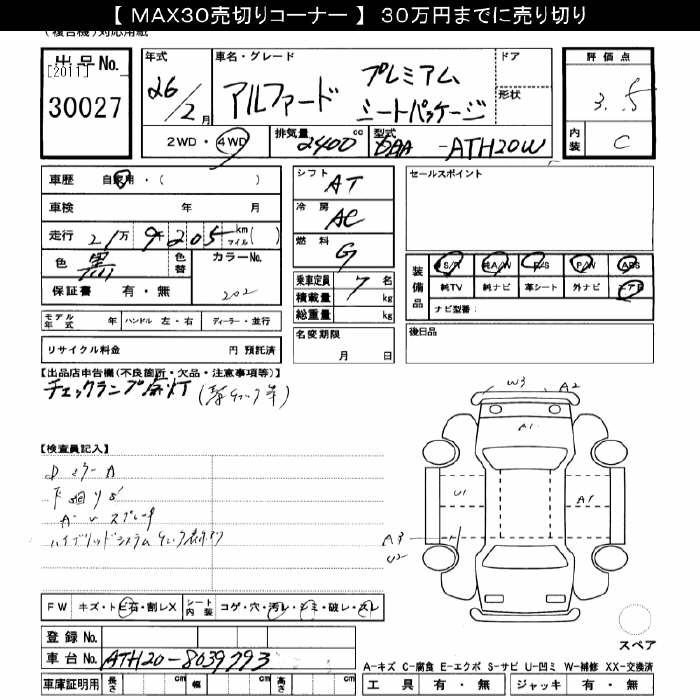 【 MAX30売切りコーナー 】 30万円までに売り切り
(複合機)対応用紙
出品No. [2011] 30027
年式 26/2月
車名・グレード アルファード プレミアム シートパッケージ
ドア
形状
評価点 3.5
内装 C
2WD・4WD 排気量 2400cc 型式 DAA-ATH20W
車歴 自家用・( )
車検 年 月
走行 21万9205 km マイル( )
色 黒 色替 カラーNo. 202
保証書 有・無
モデル年式 年 ハンドル 左・右 ディーラー・並行
リサイクル料金 円 預託済
シフト AT
冷房 AC
燃料 G
乗車定員 7名
積載量 kg
総重量 kg
名変期限 月 日
セールスポイント
装備品 S/R 純A/W P/S P/W ABS
純TV 純ナビ 革シート 外ナビ エアB
ナビ型番:
後日品
【出品店申告機(不良箇所・欠品・注意事項等)】
チェックランプ点灯
【検査員記入】
Dミラー A
下廻りS
ハイブリッドシステムチェック表示
FW キズ・トビ石・割レX シート内装 コゲ・穴・汚レ・シミ・破レ・スレ
登録No.
車台No. ATH20-8039793
車庫証明用 長さ cm 幅 cm 高さ cm
W3 A2
A1
U1 A1
A3
U2
スペア
A-キズ C-腐食 E-エクボ S-サビ U-凹ミ W-補修 XX-交換済
工具 有・無 ジャッキ 有・無